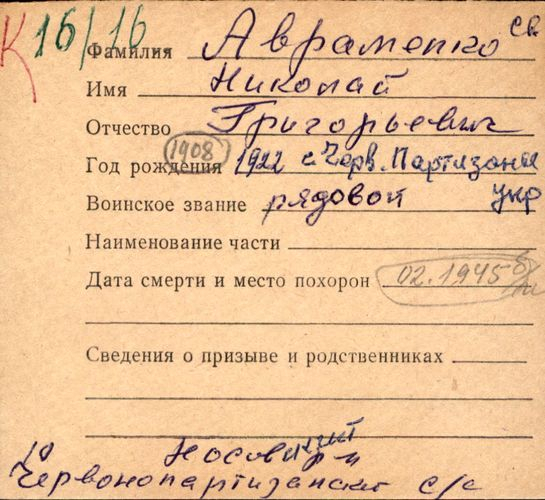 К 16/16
Фамилия Авраменко св
Имя Николай
Отчество Григорьевич
(1908)
Год рождения 1922 с. Черв. Партизаны
Воинское звание рядовой укр
Наименование части
Дата смерти и место похорон 02.1945 б/п
Сведения о призыве и родственниках
Носовский р-н
Червонопартизанский с/с